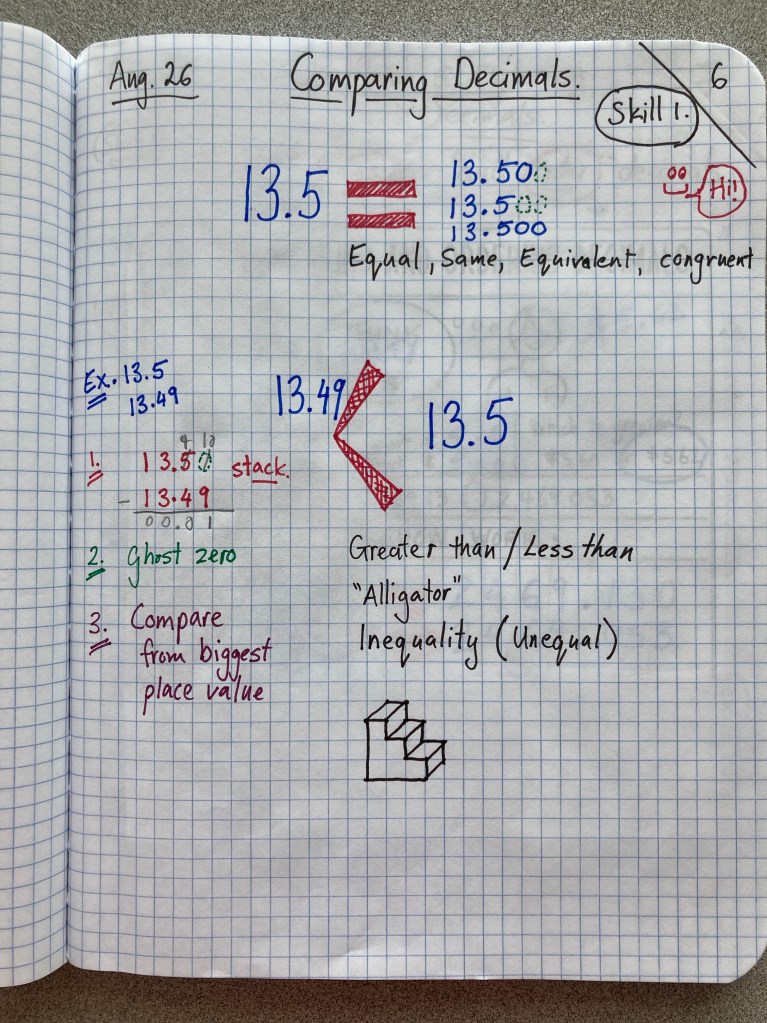 Aug. 26
Comparing Decimals.
6
Skill 1.
13.5 = 13.500
13.500
13.500
Hi!
Equal, Same, Equivalent, congruent
Ex. 13.5
13.49
13.49 < 13.5
4 10
1. 13.50 stack.
- 13.49
00.01
2. Ghost zero
3. Compare
from biggest
place value
Greater than / Less than
"Alligator"
Inequality (Unequal)